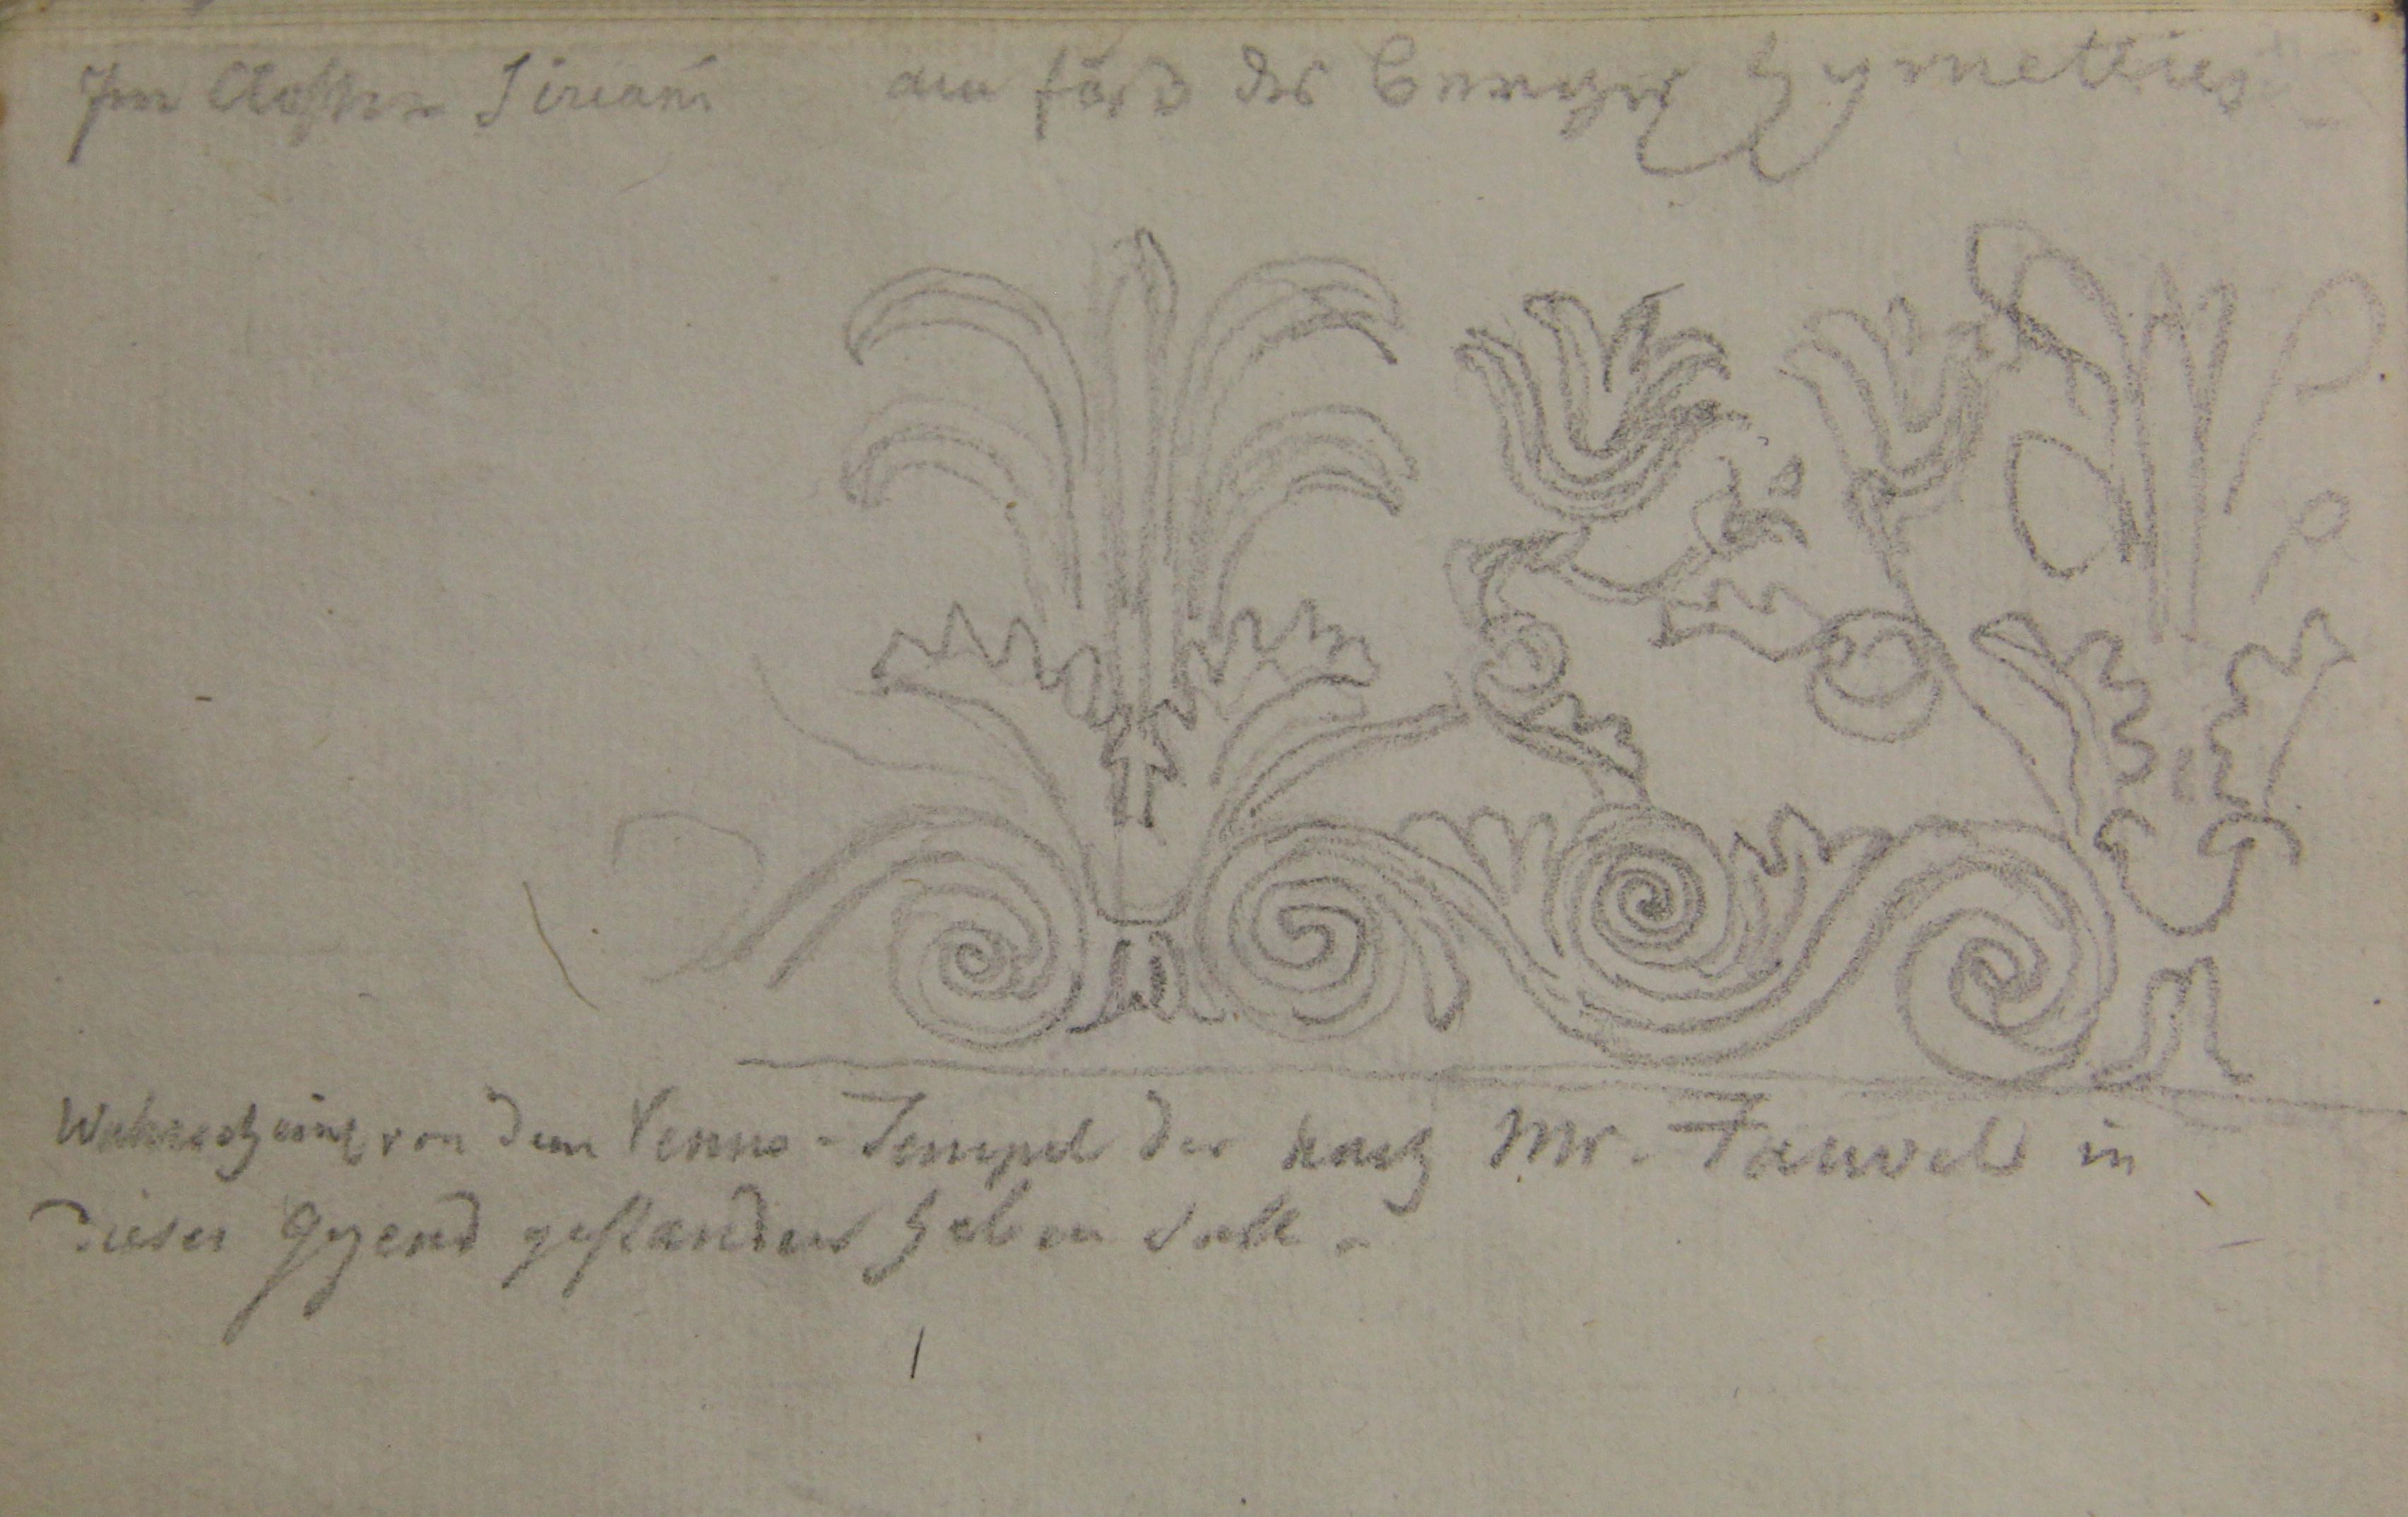 Im Closter Siriani am fus des Berges Hymettus
Wahrscheinl von dem Venus-Tempel der nach Mr. Fauvel in
dieser Gegend gestanden haben soll.